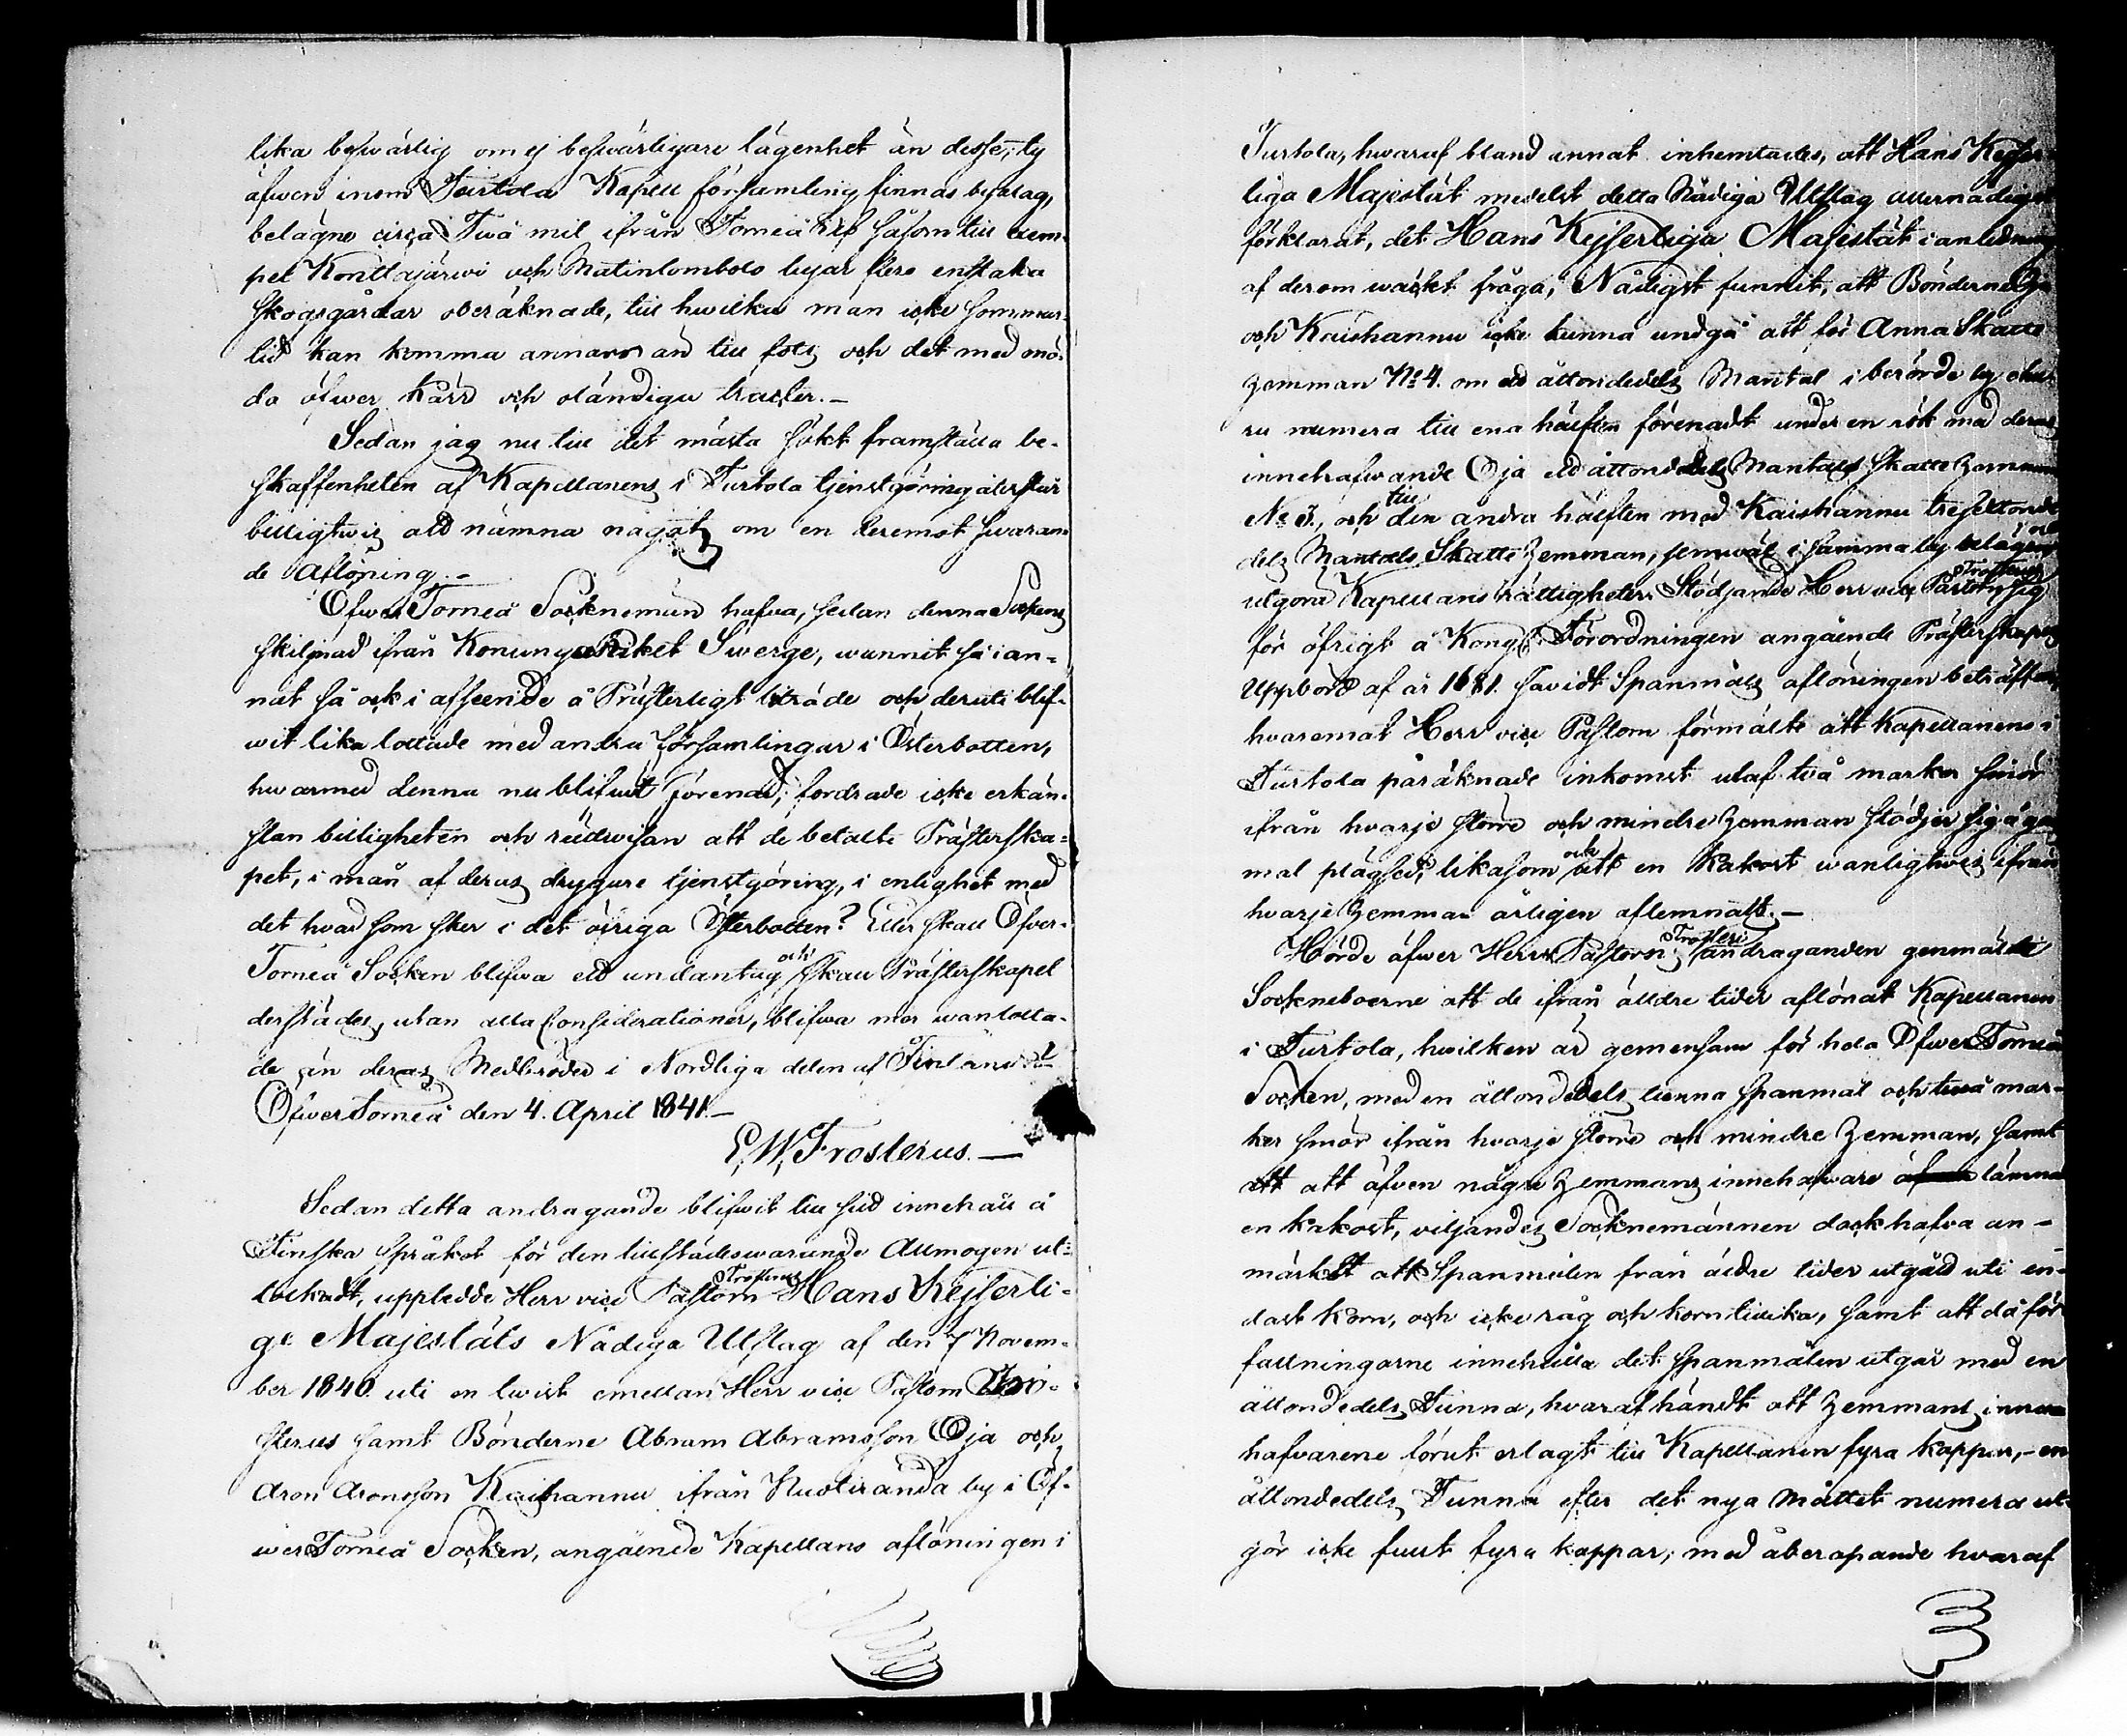 lika beswärlig om ej beswärligare lägenhet än desse, ty
äfwen inom Turtola Kapell församling finnas byalag,
belägne circa Twå mil ifrån Torneå Elf såsom till exem-
pel Konttajärwi och Matinlombolo byar flere enstaka
skogsgårdar oberäknade, till hwilka man icke sommar-
tid kan komma annars än till fots och det med mö-
da öfwer kärr och oländiga trackter. –
Sedan jag nu till det mästa sökt framställa be-
skaffenheten af Kapellanens i Turtola tjenstgöring återstår
billigtwis att nämna något om en deremot swaran-
de aflöning. –
Öfwer Torneå Socknemän hafwa, sedan denna Sockens
skiljnad ifrån Konunga Riket Swerge, wunnit så i an-
nat så ock i afseende å Prästerligt biträde och deruti blif-
wit lika lottade med andra församlingar i Österbotten,
hwarmed denna nu blifwit förenad; fordrade icke erkän-
slan billigheten och rättwisan att de betalte Prästerska-
pet, i mån af deras drygare tjenstgöring, i enlighet med
det hwad som sker i det öfriga Österbotten? Eller skall Öfver-
Torneå Socken blifwa ett undantag och skall Prästerskapet
derstädes, utan alla Considerationer, blifwa mer wanlotta-
de än deras Medbröder i Nordliga delen af Finland?
ÖfwerTorneå den 4. April 1841. –
E. W. Frosterus. –
Sedan detta andragande blifwit till sitt innehåll å
Finska Språket för den tillstädeswarande Allmogen ut-
tolkadt, uppledde Herr vice Pastorn Frosterus Hans Kejserli-
ge Majestäts Nådiga Utslag af den 7 Novem-
ber 1840. uti en twist emellan Herr vice Pastorn Fro-
sterus samt Bönderne Abram Abramsson Oja och
Aron Aronsson Kaihannu ifrån Kuoliranda by i Öf-
wer Torneå Socken, angående Kapellans aflöningen i
Turtola, hwaraf bland annat inhemtades, att Hans Kejser-
liga Majestät medelst detta Nådiga Utslag allernådigst
förklarat, det Hans Kejserliga Majestät i anledning
af derom wäckt fråga, Nådigst funnit, att Bönderne Oja
och Kaishannu icke kunna undgå att för Anna Skatte
Hemman No 4. om ett åttondedels Mantal i berörde by ehu-
ru numera till ena hälften förenadt under en rök med deras
innehafwande Oja ett åttondedels Mantals Skatte Hemman
No 3., och till den andra hälften med Kaishannu tresextonde-
dels Mantals Skatte Hemman, jemwäl i samma by belägne
utgöra Kapellans rättigheter. Stödjande Herr vice Pastorn Frosterus sig
för öfrigt å Kongl. Förordningen angående Prästerskapets
Uppbörd af år 1681. hvidt Spanmåls aflöningen beträffar,
hwaremot Herr vice Pastorn förmälte att Kapellanens i
Turtola påräknade inkomst utaf två marker smör
ifrån hvarje större och mindre Hemman stödjer sig å gam-
mal plägsed; likasom ock att en Kakort wanligtwis ifrån
hvarje Hemman årligen aflemnats. –
Hörde äfwer Herr Pastorns Frosteri andraganden genmälte
Sockneboerne att de ifrån älldre tider aflönat Kapellanen
i Turtola, hwilken är gemensam för hela Öfwer Torneå
Socken, med en åttondedels tunna spanmål och två mar-
ker smör ifrån hvarje större och mindre Hemman, samt
att äfven några Hemmans innehafware lämna
en kakort, viljandes Socknemännen dock hafva an-
märkt att Spanmålen från äldre tider utgått uti en-
dast korn, och icke råg och korn tillika, samt att då för-
fattningarne innehålla det spanmålen utgår med en
åttondedels Tunna, hvaraf händt att Hemmans inne-
hafvarene förut erlagt till Kapellanen fyra kappar, – en
åttondedels Tunna efter det nya Måttet numera ut-
gör icke fullt fyra kappar; med åberopande hvaraf